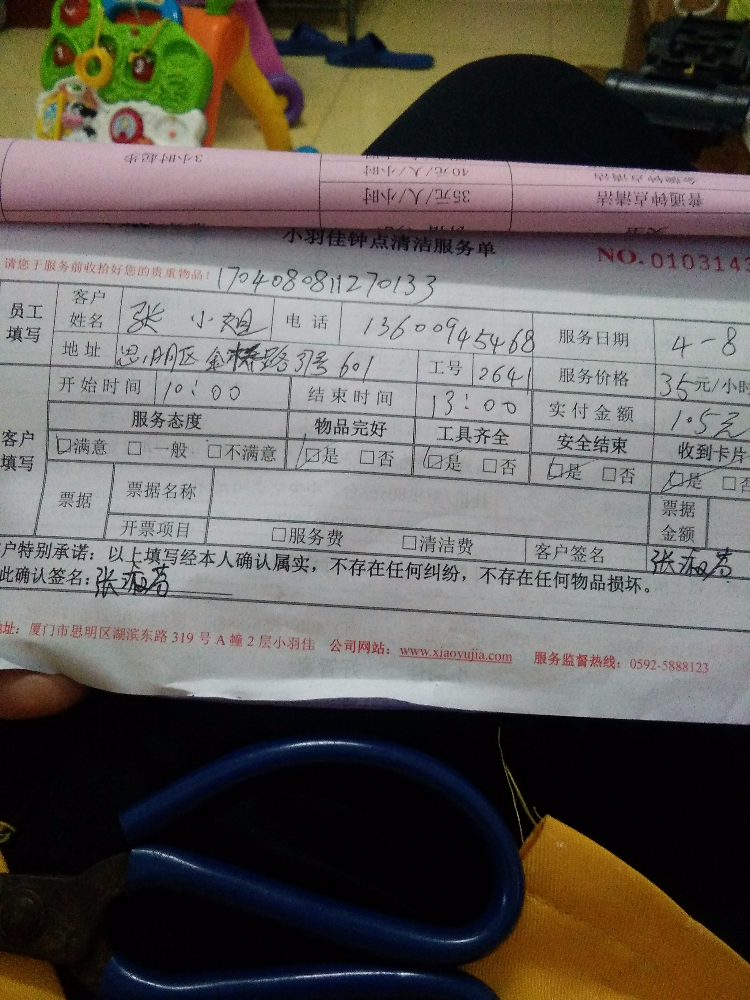 3小时起步
40元/人/小时
金牌钟点清洁
35元/人/小时
普通钟点清洁
小羽佳钟点清洁服务单
NO. 0103143
请您于服务前收拾好您的贵重物品!
1704080811270133
员工填写
客户姓名 张小姐 电话 13600945468 服务日期 4-8
地址 思明区金榜路31号601 工号 2641 服务价格 35元/小时
客户填写
开始时间 10:00 结束时间 13:00 实付金额 105元
服务态度 物品完好 工具齐全 安全结束 收到卡片
☑满意 □一般 □不满意 ☑是 □否 ☑是 □否 ☑是 □否 ☑是 □否
票据 票据名称 票据金额
开票项目 □服务费 □清洁费 客户签名
户特别承诺:以上填写经本人确认属实,不存在任何纠纷,不存在任何物品损坏。
此确认签名:
地址:厦门市思明区湖滨东路 319 号 A 幢 2 层小羽佳 公司网站:www.xiaoyujia.com 服务监督热线:0592-5888123